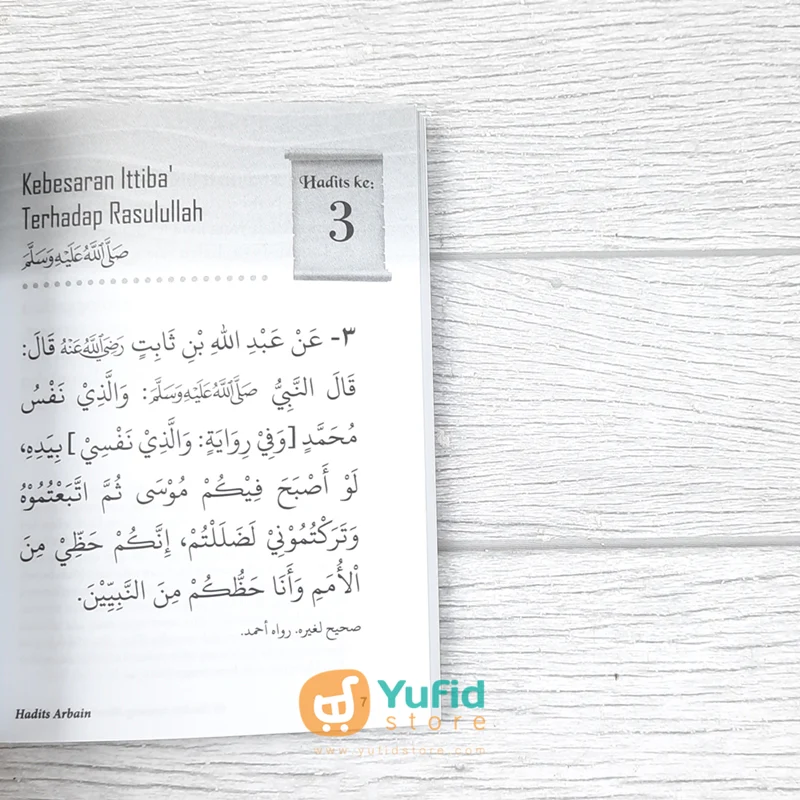 Kebesaran Ittiba'
Terhadap Rasulullah
صَلَّى اللَّهُ عَلَيْهِ وَسَلَّمَ
Hadits ke:
3
٣- عَنْ عَبْدِ اللهِ بْنِ ثَابِتٍ رَضِيَ اللَّهُ عَنْهُ قَالَ:
قَالَ النَّبِيُّ صَلَّى اللَّهُ عَلَيْهِ وَسَلَّمَ: وَالَّذِيْ نَفْسُ
مُحَمَّدٍ [وَفِيْ رِوَايَةٍ: وَالَّذِيْ نَفْسِيْ] بِيَدِهِ،
لَوْ أَصْبَحَ فِيْكُمْ مُوْسَى ثُمَّ اتَّبَعْتُمُوْهُ
وَتَرَكْتُمُوْنِيْ لَضَلَلْتُمْ، إِنَّكُمْ حَظِّيْ مِنَ
الْأُمَمِ وَأَنَا حَظُّكُمْ مِنَ النَّبِيِّيْنَ.
صحيح لغيره. رواه أحمد.
Hadits Arbain
7
Yufid
store
www.yufidstore.com